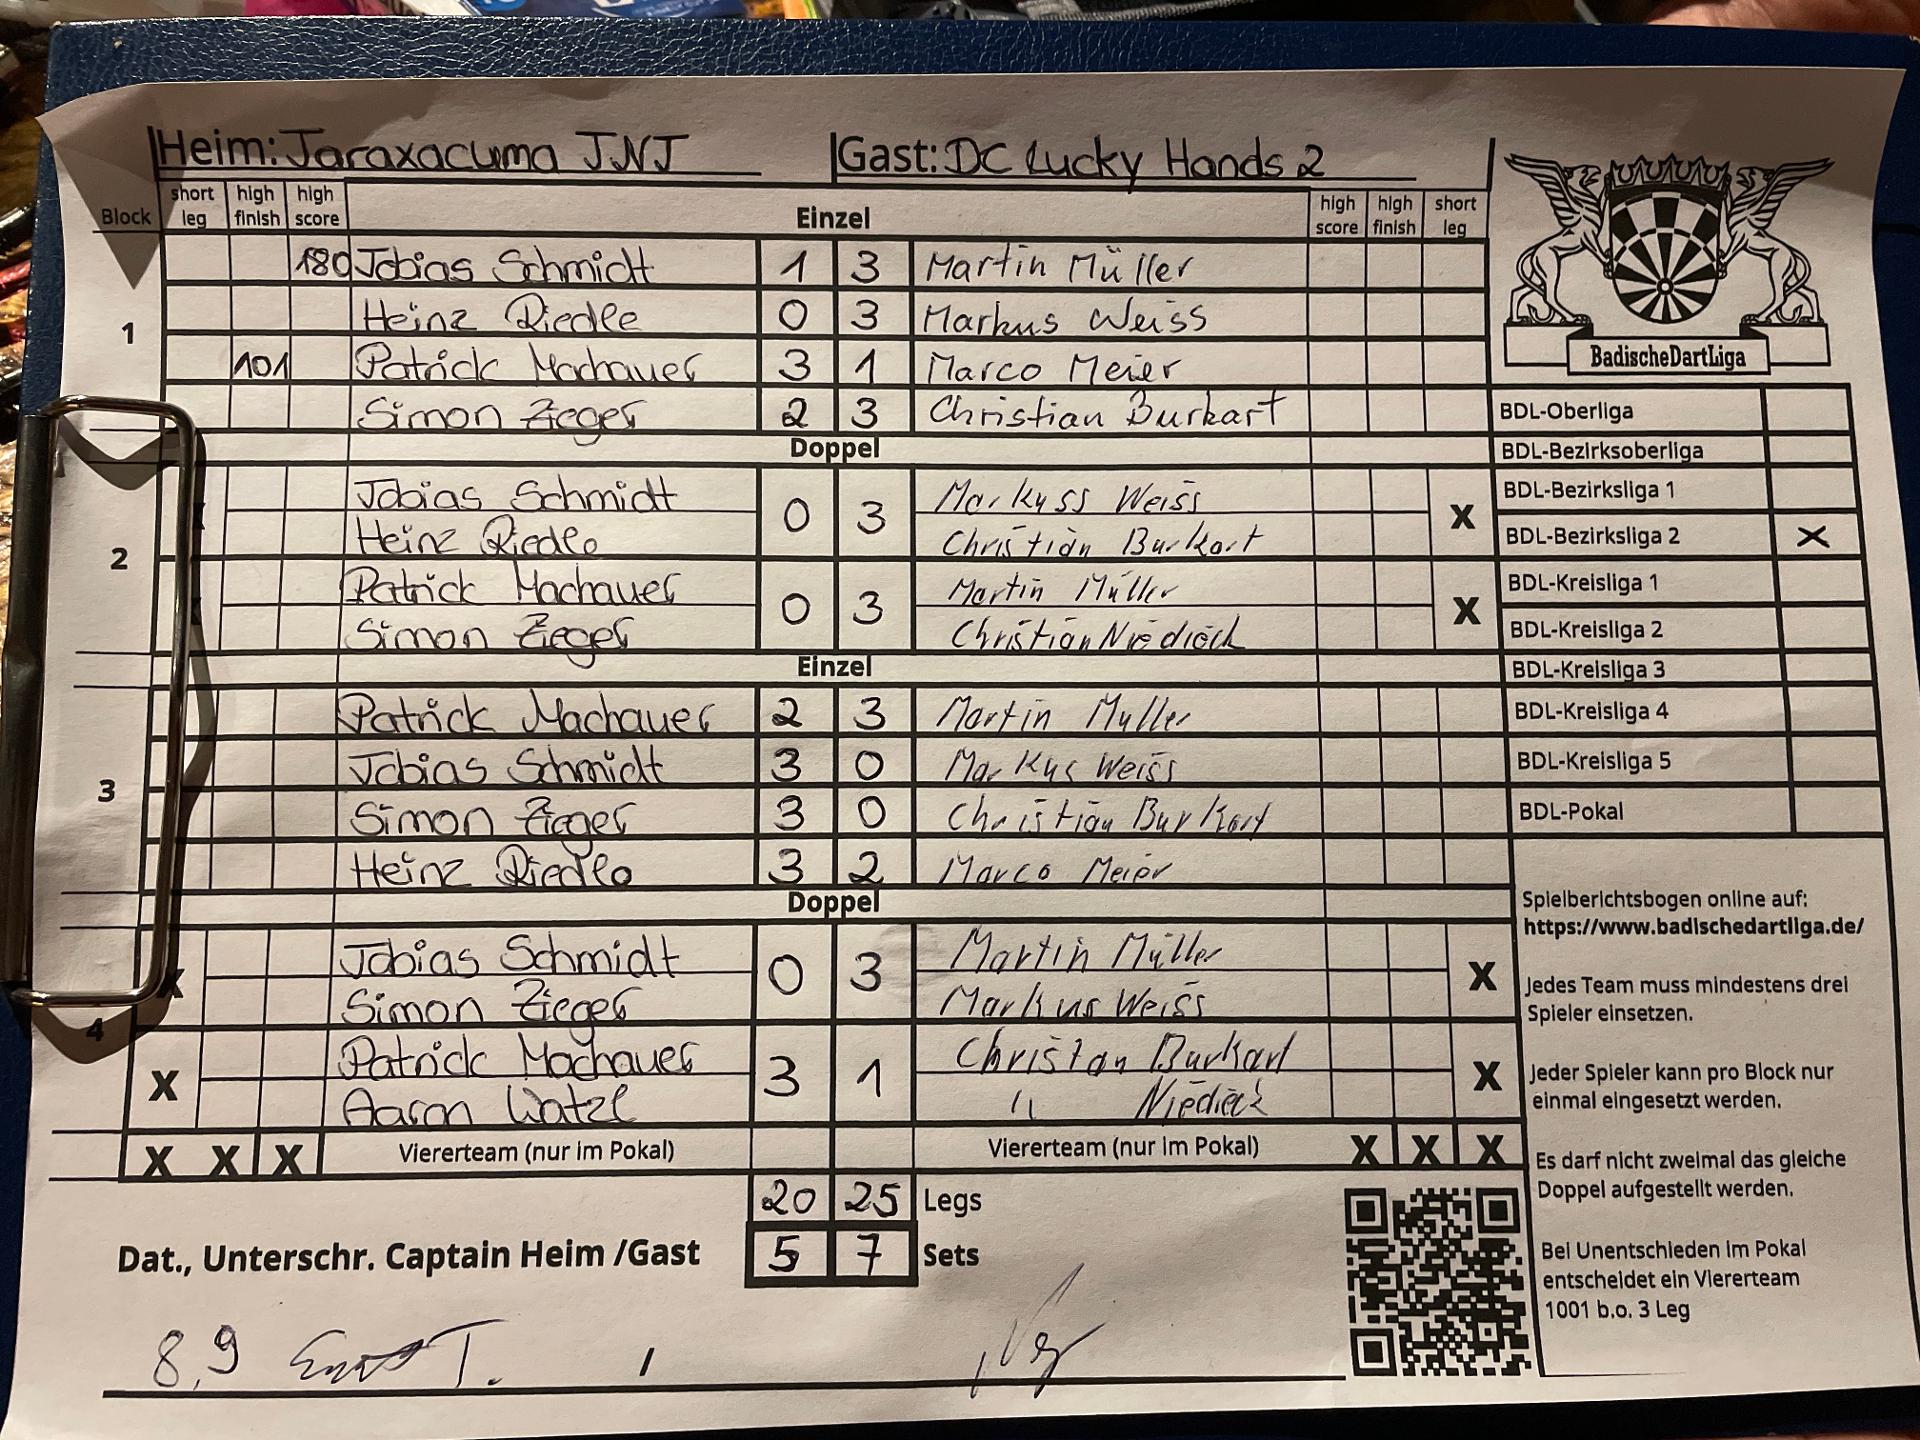 Heim: Jaraxacuma JNJ Gast: DC Lucky Hands 2
Block short leg high finish high score Einzel high score high finish short leg
1
180 Tobias Schmidt 1 3 Martin Müller
Heinz Riedle 0 3 Markus Weiss
101 Patrick Machauer 3 1 Marco Meier
Simon Zieger 2 3 Christian Burkart
Doppel
2
Tobias Schmidt 0 3 Markuss Weiss X
Heinz Riedle Christian Burkart
Patrick Machauer 0 3 Martin Müller X
Simon Zieger Christian Niedieck
Einzel
3
Patrick Machauer 2 3 Martin Muller
Tobias Schmidt 3 0 Markus Weiss
Simon Zieger 3 0 Christian Burkart
Heinz Riedle 3 2 Marco Meier
Doppel
4
X Tobias Schmidt 0 3 Martin Müller X
Simon Zieger Markus Weiss
X Patrick Machauer 3 1 Christan Burkart X
Aaron Watzl " Niedieck
X X X Viererteam (nur im Pokal) Viererteam (nur im Pokal) X X X
20 25 Legs
Dat., Unterschr. Captain Heim /Gast 5 7 Sets
8.9 T. /
BadischeDartLiga
BDL-Oberliga
BDL-Bezirksoberliga
BDL-Bezirksliga 1
BDL-Bezirksliga 2 X
BDL-Kreisliga 1
BDL-Kreisliga 2
BDL-Kreisliga 3
BDL-Kreisliga 4
BDL-Kreisliga 5
BDL-Pokal
Spielberichtsbogen online auf:
https://www.badischedartliga.de/
Jedes Team muss mindestens drei
Spieler einsetzen.
Jeder Spieler kann pro Block nur
einmal eingesetzt werden.
Es darf nicht zweimal das gleiche
Doppel aufgestellt werden.
Bei Unentschieden im Pokal
entscheidet ein Viererteam
1001 b.o. 3 Leg